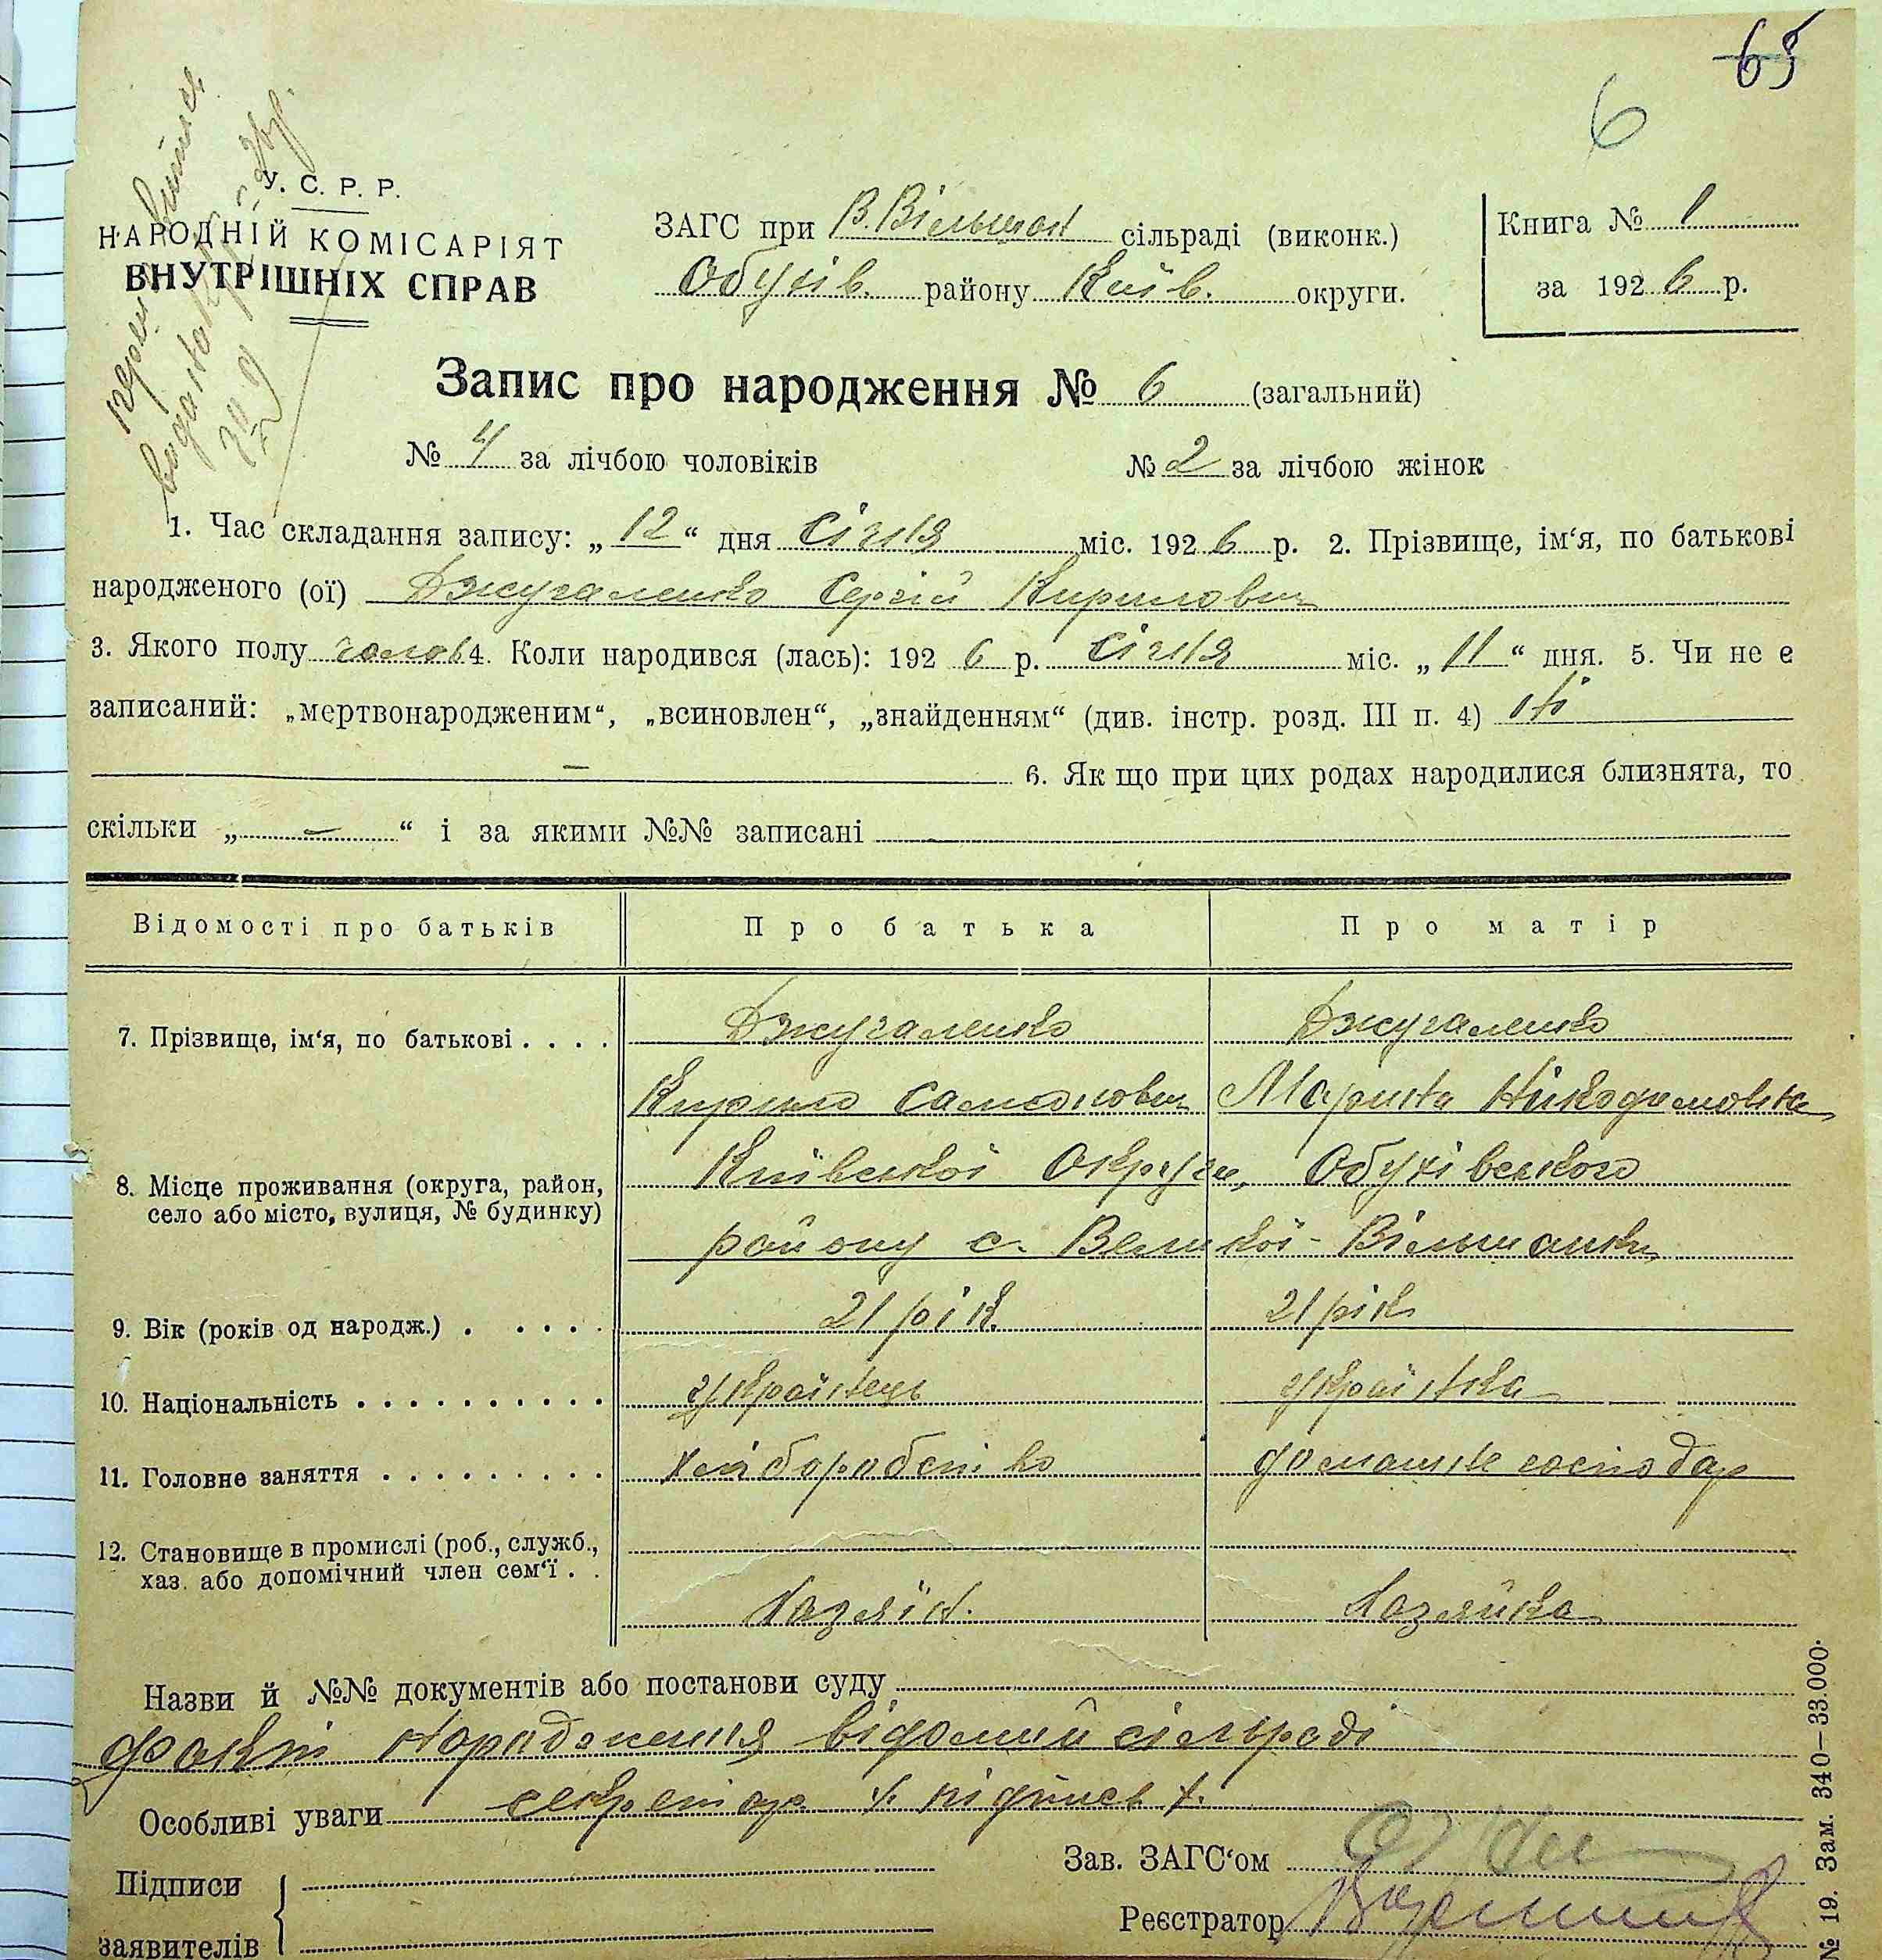 65
6
У. С. Р. Р.
НАРОДНІЙ КОМІСАРІЯТ
ВНУТРІШНІХ СПРАВ
ЗАГС при В. Вільшан сільраді (виконк.)
Обухів. району Київ. округи.
Книга № 1
за 1926 р.
Запис про народження № 6 (загальний)
№ 4 за лічбою чоловіків № 2 за лічбою жінок
1. Час складання запису: „12“ дня Січня міс. 1926 р. 2. Прізвище, ім‘я, по батькові
народженого (ої) Джугаленко Сергій Кирилович
3. Якого полу чолов 4. Коли народився (лась): 1926 р. Січня міс. „11“ дня. 5. Чи не є
записаний: „мертвонародженим“, „всиновлен“, „знайденням“ (див. інстр. розд. III п. 4) ні
— 6. Як що при цих родах народилися близнята, то
скільки „ — “ і за якими №№ записані
Відомості про батьків Про батька Про матір
7. Прізвище, ім‘я, по батькові . . . . Джугаленко Джугаленко
Кирило Самойлович Марина Никодимовна
8. Місце проживання (округа, район, Київської Округи, Обухівського
село або місто, вулиця, № будинку) району с. Великої-Вільшанки
9. Вік (років од народж.) . . . . . 21 рік. 21 рік
10. Національність . . . . . . . . . . українець українка
11. Головне заняття . . . . . . . . . хліборобство домашнє господар
12. Становище в промислі (роб., служб.,
хаз. або допомічний член сем‘ї . . Хазяїн. Хазяйка
Назви й №№ документів або постанови суду
факт народження відомий сільраді
Особливі уваги секретар /. підпись /.
Підписи
заявителів
Зав. ЗАГС‘ом
Реєстратор
№ 19. Зам. 340—33.000.